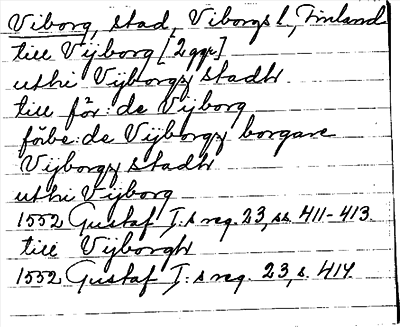 Viborg, stad, Viborgs l., Finland
till Vijborg [2 ggr]
uthi Vijborgz stadh
till för:de Vijborg
förbe:de Vijborgz borgare
Vijborgz stadh
uthi Vijborg
1552 Gustaf I:s reg. 23, ss. 411-413.
till Vijborgh
1552 Gustaf I:s reg. 23, s. 414.